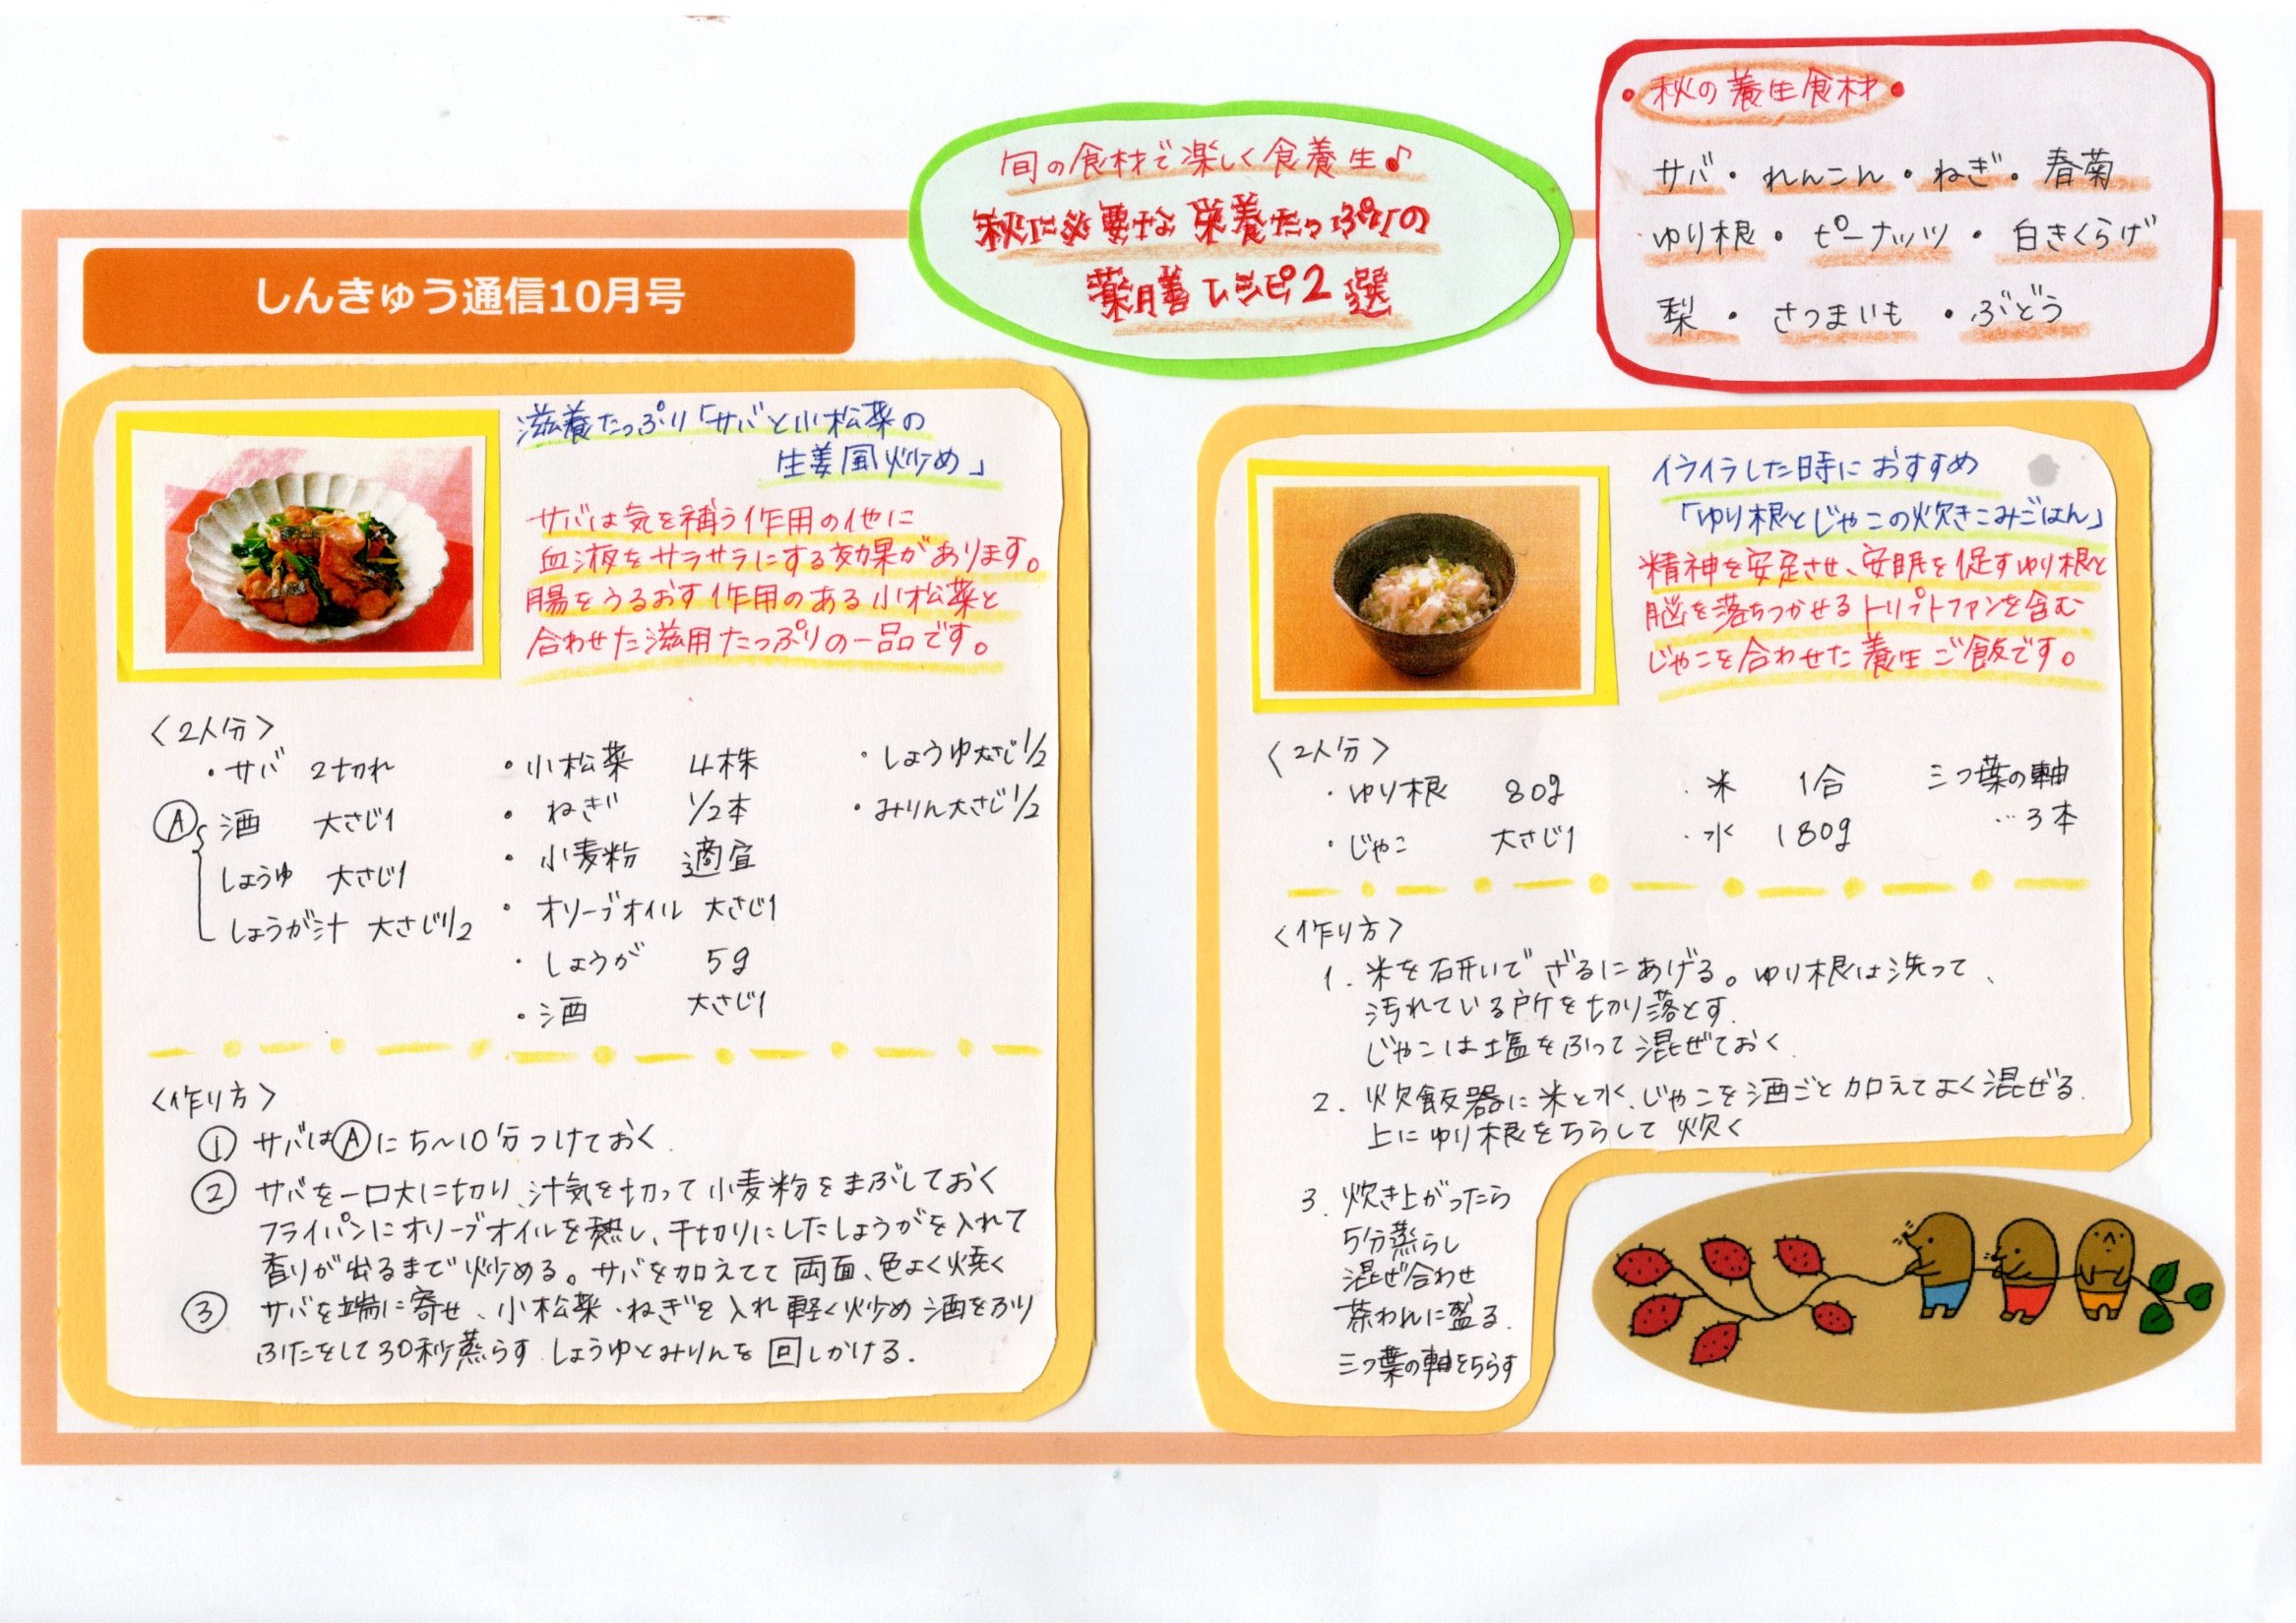 しんきゅう通信10月号
旬の食材で楽しく食養生♪
秋に必要な栄養たっぷりの
薬膳レシピ2選
・秋の養生食材・
サバ・れんこん・ねぎ・春菊
ゆり根・ピーナッツ・白きくらげ
梨・さつまいも・ぶどう
滋養たっぷり「サバと小松菜の
生姜風炒め」
サバは気を補う作用の他に
血液をサラサラにする効果があります。
腸をうるおす作用のある小松菜と
合わせた滋用たっぷりの一品です。
〈2人分〉
・サバ 2切れ
Ⓐ 酒 大さじ1
しょうゆ 大さじ1
しょうが汁 大さじ1/2
・小松菜 4株
・ねぎ 1/2本
・小麦粉 適宜
・オリーブオイル 大さじ1
・しょうが 5g
・酒 大さじ1
・しょうゆ大さじ1/2
・みりん大さじ1/2
〈作り方〉
① サバはⒶに5~10分つけておく.
② サバを一口大に切り、汁気を切って小麦粉をまぶしておく
フライパンにオリーブオイルを熱し、千切りにしたしょうがを入れて
香りが出るまで炒める。サバを加えてて両面、色よく焼く
③ サバを端に寄せ、小松菜・ねぎを入れ軽く炒め酒をふり
ふたをして30秒蒸らす.しょうゆとみりんを回しかける.
イライラした時におすすめ
「ゆり根とじゃこの炊きこみごはん」
精神を安定させ、安眠を促すゆり根と
脳を落ちつかせるトリプトファンを含む
じゃこを合わせた養生ご飯です。
〈2人分〉
・ゆり根 80g
・じゃこ 大さじ1
・米 1合
・水 180g
三つ葉の軸
…3本
〈作り方〉
1. 米を研いでざるにあげる。ゆり根は洗って、
汚れている所を切り落とす.
じゃこは塩をふって混ぜておく.
2. 炊飯器に米と水、じゃこを酒ごと加えてよく混ぜる.
上にゆり根をちらして炊く
3. 炊き上がったら
5分蒸らし
混ぜ合わせ
茶わんに盛る.
三つ葉の軸をちらす